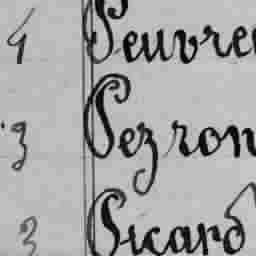 4 Peuvre
3 Pezron
3 Picard